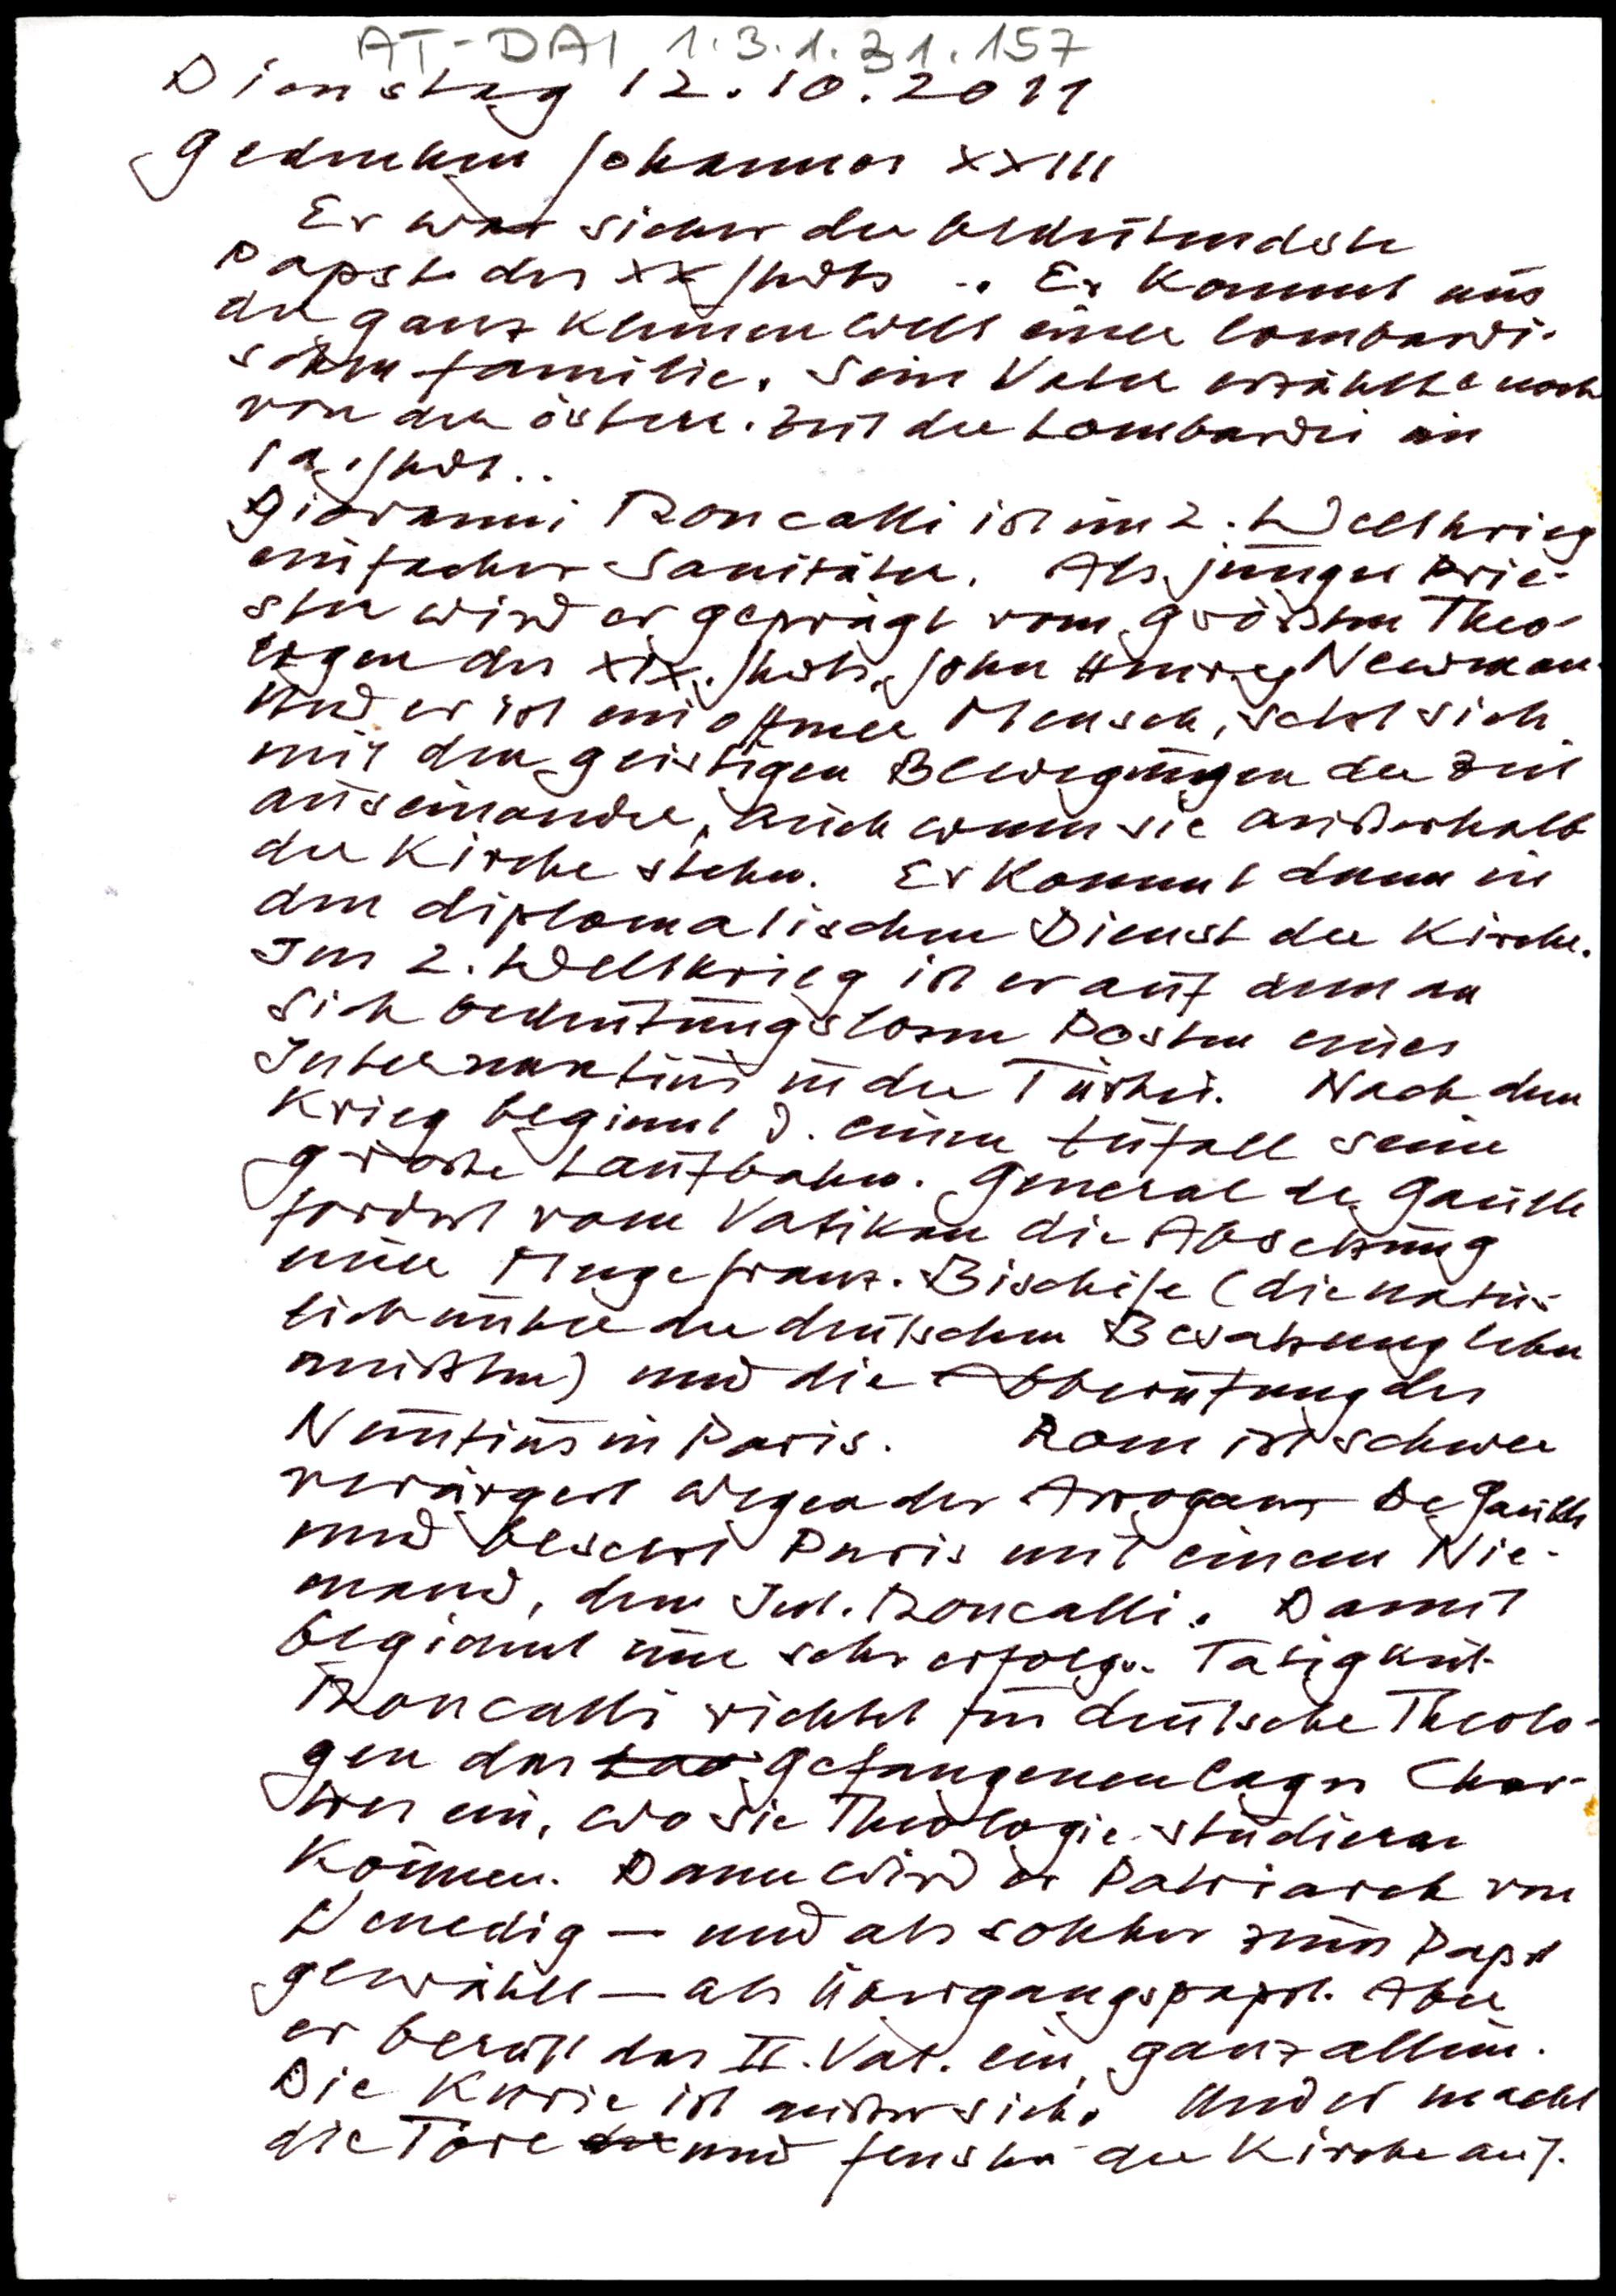 AT-DAI 1.3.1.31.157
Dienstag 12.10.2011
Gedenken Johannes XXIII
Er war sicher der bedeutendste
Papst des XX Jhdts .. Er kommt aus
der ganz kleinen Welt einer lombardi-
schen Familie. Sein Vater erzählte noch
von der österr. Zeit der Lombardei im
19. Jhdt..
Giovanni Roncalli ist im 2. Weltkrieg
einfacher Sanitäter. Als junger Prie-
ster wird er geprägt vom größten Theo-
logen des XIX. Jhdts, John Henry Newman.
Und er ist ein offener Mensch, setzt sich
mit den geistigen Bewegungen der Zeit
auseinander, auch wenn sie außerhalb
der Kirche stehen. Er kommt dann in
den diplomatischen Dienst der Kirche.
Im 2. Weltkrieg ist er auf dem an
sich bedeutungslosen Posten eines
Internuntius in der Türkei. Nach dem
Krieg beginnt d. einen Zufall seine
große Laufbahn. General de Gaulle
fordert vom Vatikan die Absetzung
einer Menge franz. Bischöfe (die natür-
lich unter der deutschen Besatzung leben
mußten) und die Abberufung des
Nuntius in Paris. Rom ist schwer
verärgert wegen der Arroganz De Gaulles
und besetzt Paris mit einem Nie-
mand, dem Int. Roncalli. Damit
beginnt eine sehr erfolgr. Tätigkeit.
Roncalli richtet für deutsche Theolo-
gen das Gefangenenlager Char-
tres ein, wo sie Theologie studieren
können. Dann wird er Patriarch von
Venedig — und als solcher zum Papst
gewählt — als Übergangspapst. Aber
er beruft das II. Vat. ein, ganz allein.
Die Kurie ist außer sich. Und er macht
die Tore und Fenster der Kirche auf.